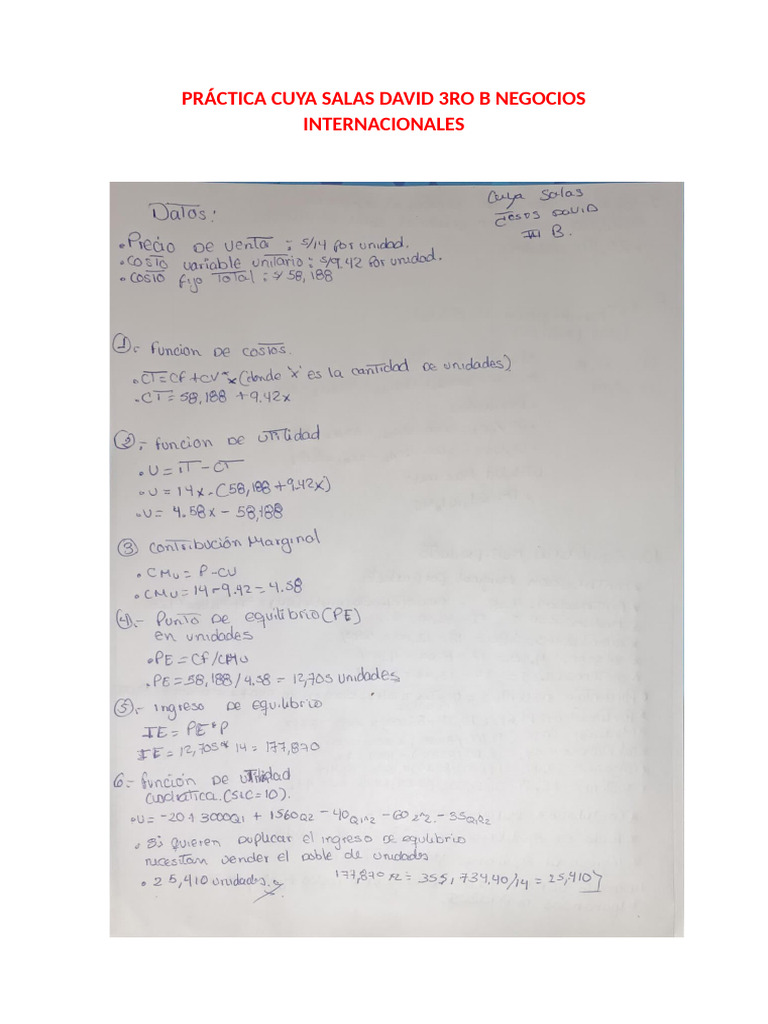 PRÁCTICA CUYA SALAS DAVID 3RO B NEGOCIOS
INTERNACIONALES
Cuya Salas
Jesus DAVID
III B.
Datos:
• Precio De Venta : S/14 por unidad.
• Costo variable unitario : S/9.42 por unidad.
• Costo fijo Total : S/ 58,188
①.- Funcion De costos.
• CT = CF + CV * x (donde 'x' es la cantidad De unidades)
• CT = 58,188 + 9.42x
②.- Funcion De Utilidad
• U = IT - CT
• U = 14x - (58,188 + 9.42x)
• U = 4.58x - 58,188
③ Contribución Marginal
• CMu = P - CU
• CMu = 14 - 9.42 = 4.58
④.- Punto De equilibrio (PE)
en unidades
• PE = CF/CMu
• PE = 58,188 / 4.58 = 12,705 unidades
⑤.- Ingreso De Equilibrio
IE = PE * P
IE = 12,705 * 14 = 177,870
6.- Función De Utilidad
Cuadratica. (SLC = 10).
• U = -20 + 3000Q1 + 1560Q2 - 40Q1^2 - 60 2^2. - 35Q1Q2
• Si quieren Duplicar el ingreso De equilibrio
necesitan vender el doble de unidades
• 25,410 unidades.
177,870 x 2 = 355,734.40/14 = 25,410